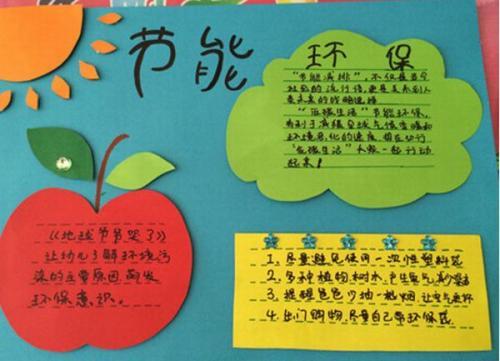 节能
环保
"节能减排",不仅是当今
社会的流行语,更是关系到人
类未来的战略选择
"低碳生活"节能环保,
有利于减缓全球气候变暖和
环境恶化的速度
"低碳生活"大家一起行动
起来!
《地球爷爷哭了》
让幼儿了解环境污
染的主要原因,萌发
环保意识。
1、尽量避免使用一次性塑料袋
2、多种植物树木,
3、提醒爸爸少抽一根烟,让空气
4、出门购物,尽量自己带环保袋